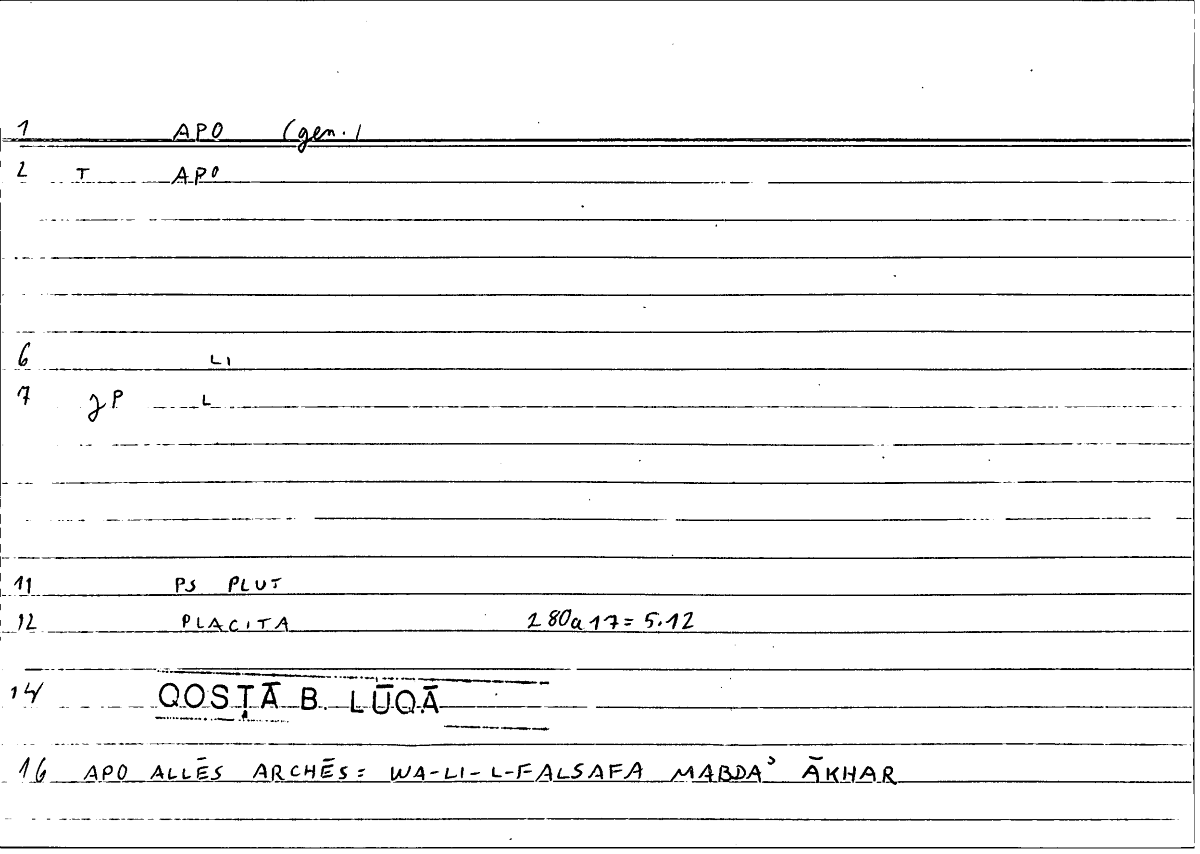 1 APO (gen.)
2 T APO
6 LI
7 JP L
11 PS PLUT
12 PLACITA 280a17=5.12
14 QOSṬĀ B. LŪQĀ
16 APO ALLĒS ARCHĒS = WA-LI-L-FALSAFA MABDAʾ ĀKHAR